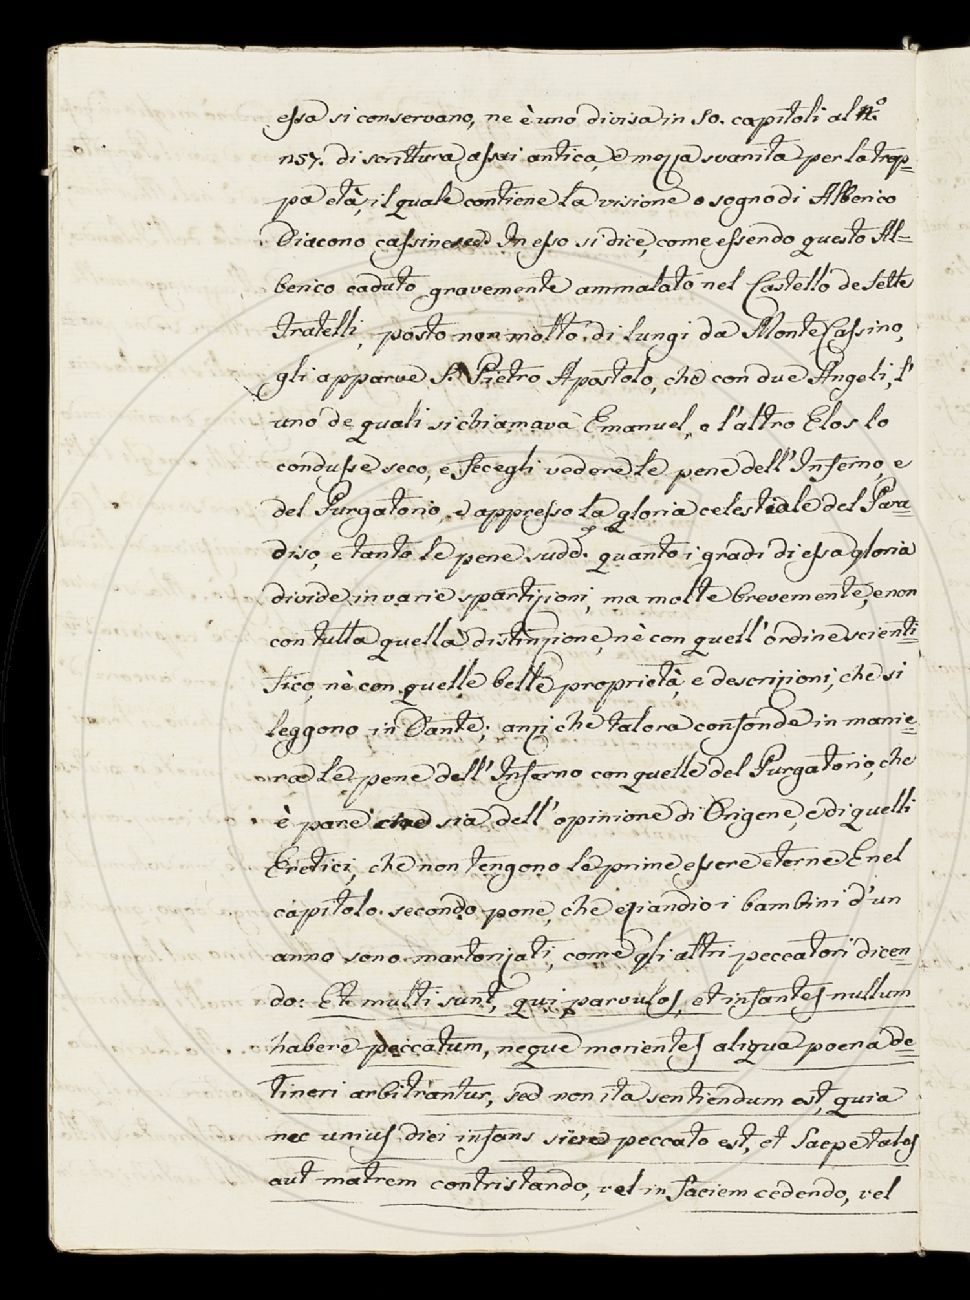 essa si conservano, ne è uno divisa in 50. capitoli al N.º
1157. di scrittura assai antica, e mezza svanita per la trop=
pa età, il quale contiene la visione o sogno di Alberico
Diacono cassinese. In esso si dice, come essendo questo Al=
berico caduto gravemente ammalato nel Castello de Sette
Fratelli, posto non molto di lungi da Monte Cassino,
gli apparve S. Pietro Apostolo, che con due Angeli, l'
uno de quali si chiamava Emanuel, e l'altro Elos lo
condusse seco, e fecegli vedere le pene dell'Inferno, e
del Purgatorio, e appresso la gloria celestiale del Para=
diso, e tanto le pene sudd.e quanto i gradi di essa gloria
divide in varie spartizioni, ma molte brevemente, e non
con tutta quella distinzione, nè con quell'ordine scienti=
fico, nè con quelle belle proprietà, e descrizioni, che si
leggono in Dante; anzi che talora confonde in manie=
ra le pene dell'Inferno con quelle del Purgatorio, che
è pare che sia dell'opinione di Origene, e di quelli
Eretici, che non tengono le prime essere eterne. E nel
capitolo secondo pone, che eziandio i bambini d'un
anno sono martorizati, come gli altri peccatori dicen=
do: Et multi sunt, qui parvulos, et infantes nullum
habere peccatum, neque morientes aliqua poena de=
tineri arbitrantur, sed non ita sentiendum est, quia
nec unius diei infans sine peccato est, et saepe talos
aut matrem contristando, vel in faciem cedendo, vel